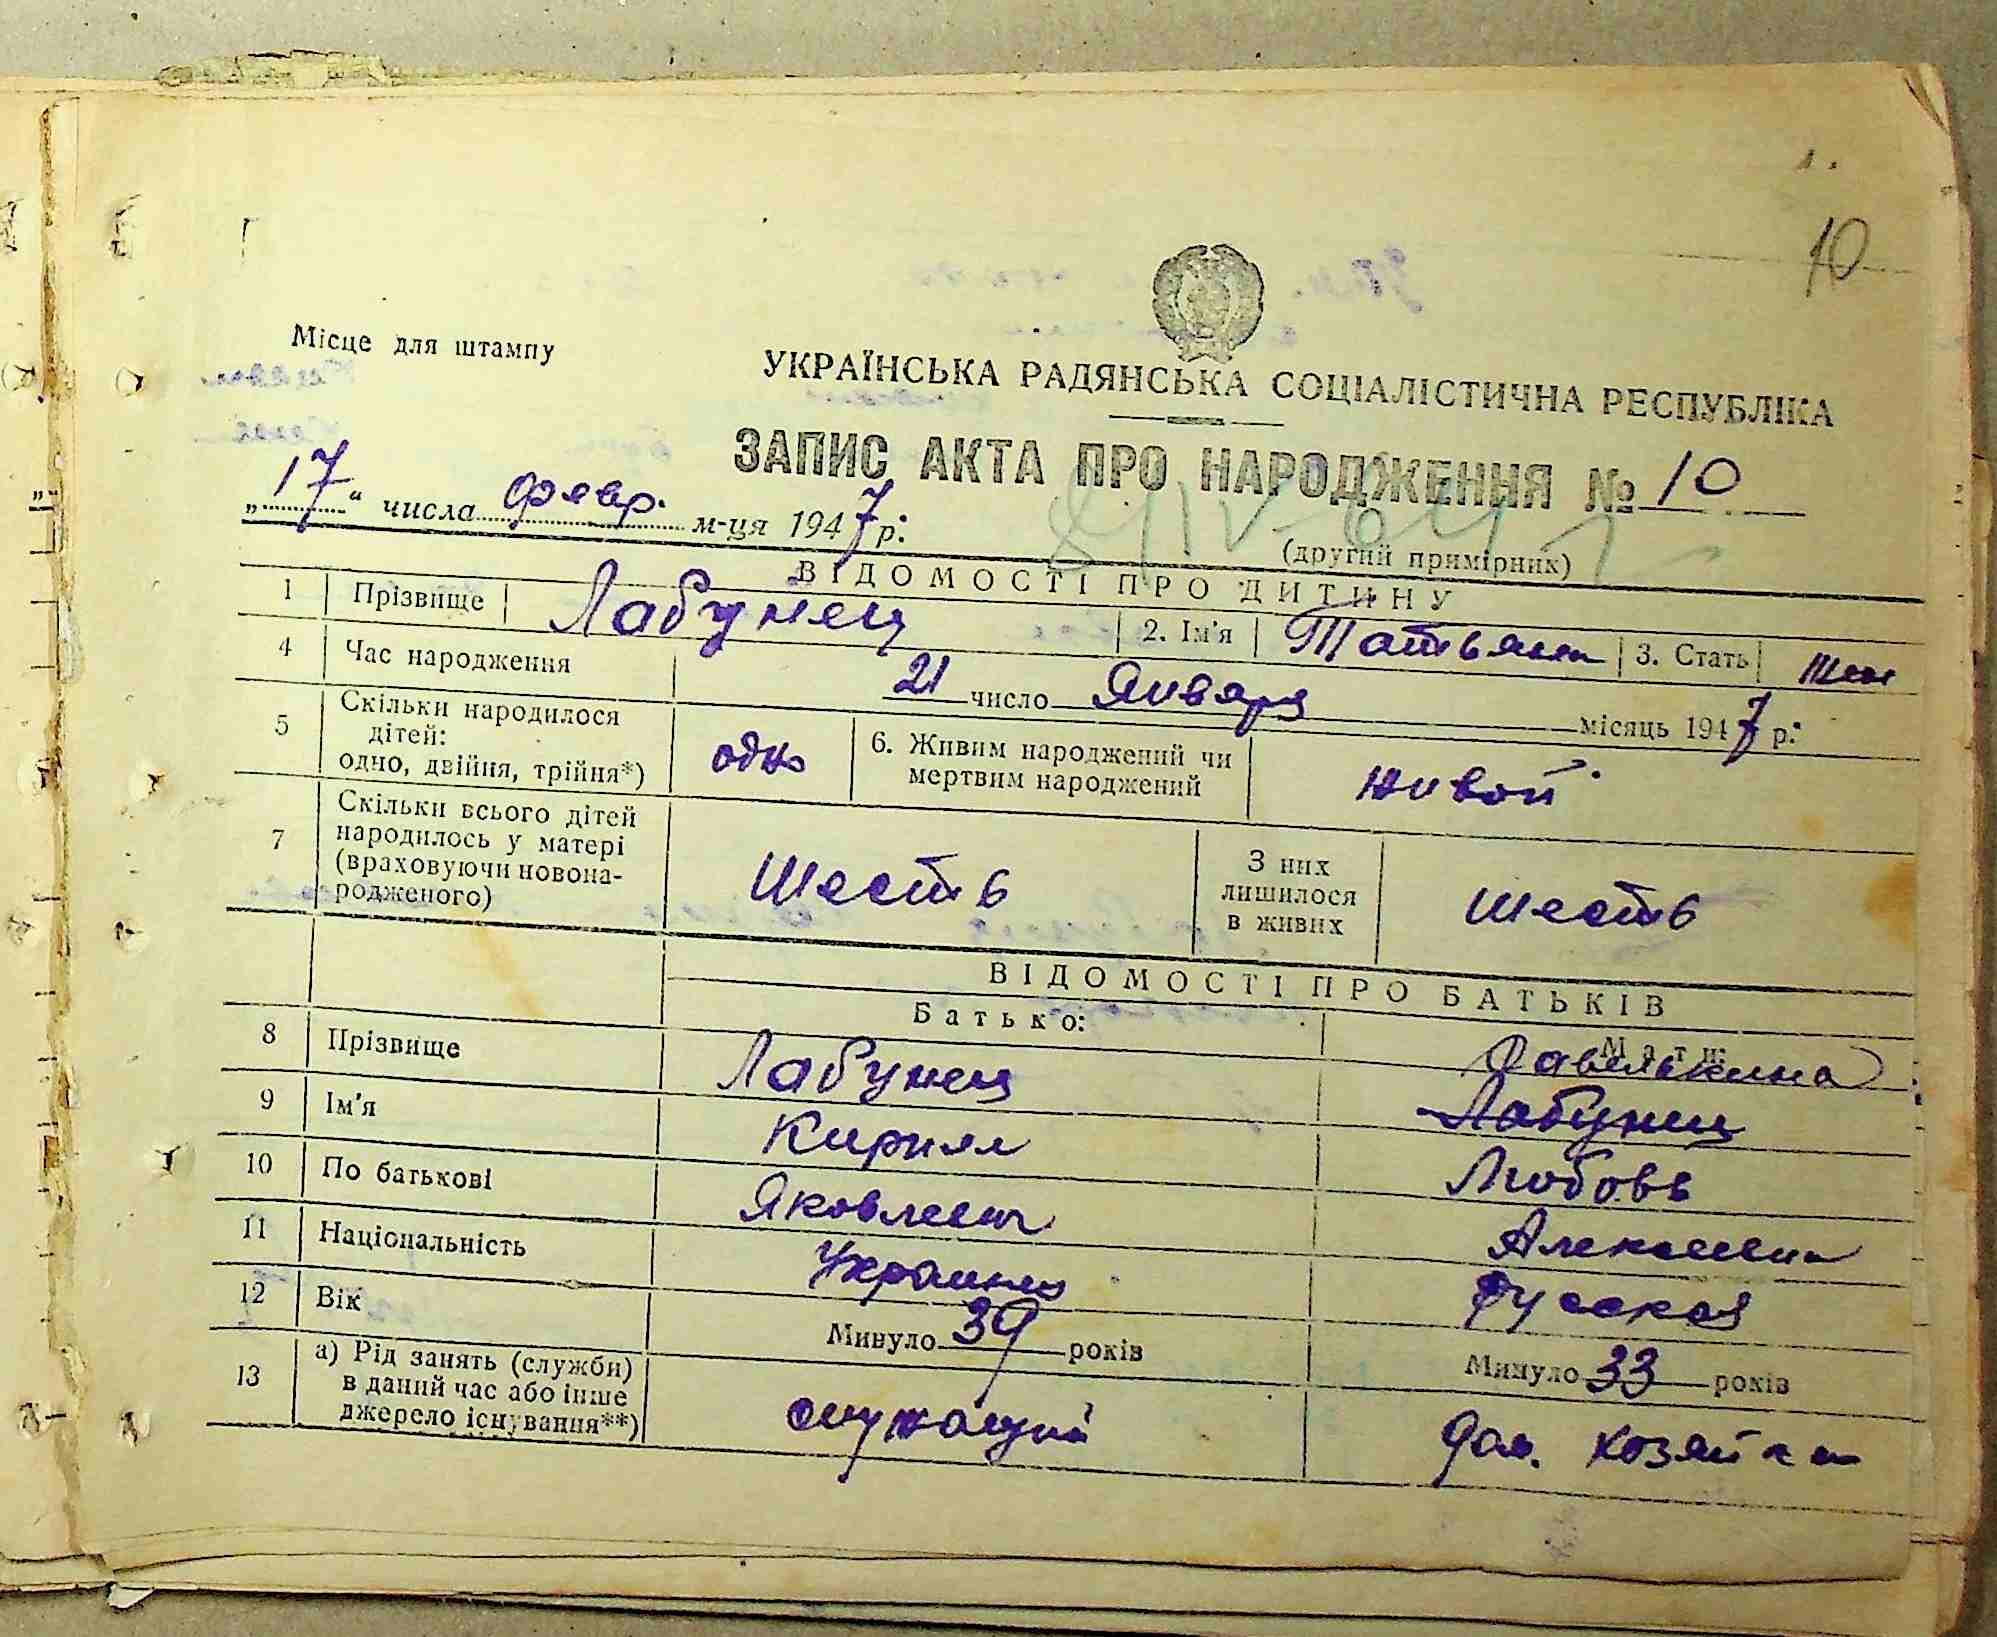 10
Місце для штампу
УКРАЇНСЬКА РАДЯНСЬКА СОЦІАЛІСТИЧНА РЕСПУБЛІКА
ЗАПИС АКТА ПРО НАРОДЖЕННЯ № 10
„17“ числа февр. м-ця 1947 р:
(другий примірник)
ВІДОМОСТІ ПРО ДИТИНУ
1 Прізвище Лабунец 2. Ім'я Татьяна 3. Стать жен
4 Час народження 21 число Января місяць 1947 р:
5 Скільки народилося
дітей:
одно, двійня, трійня*) одно 6. Живим народжений чи
мертвим народжений живой
7 Скільки всього дітей
народилось у матері
(враховуючи новона-
родженого) шесть З них
лишилося
в живих шесть
ВІДОМОСТІ ПРО БАТЬКІВ
Батько: Мати:
8 Прізвище Лабунец Савелькина
Лабунец
9 Ім'я Кирилл Любовь
10 По батькові Яковлевич Алексеевна
11 Національність Украинец Русская
12 Вік Минуло 39 років Минуло 33 років
13 а) Рід занять (служби)
в даний час або інше
джерело існування**) служащий дом. хозяйка